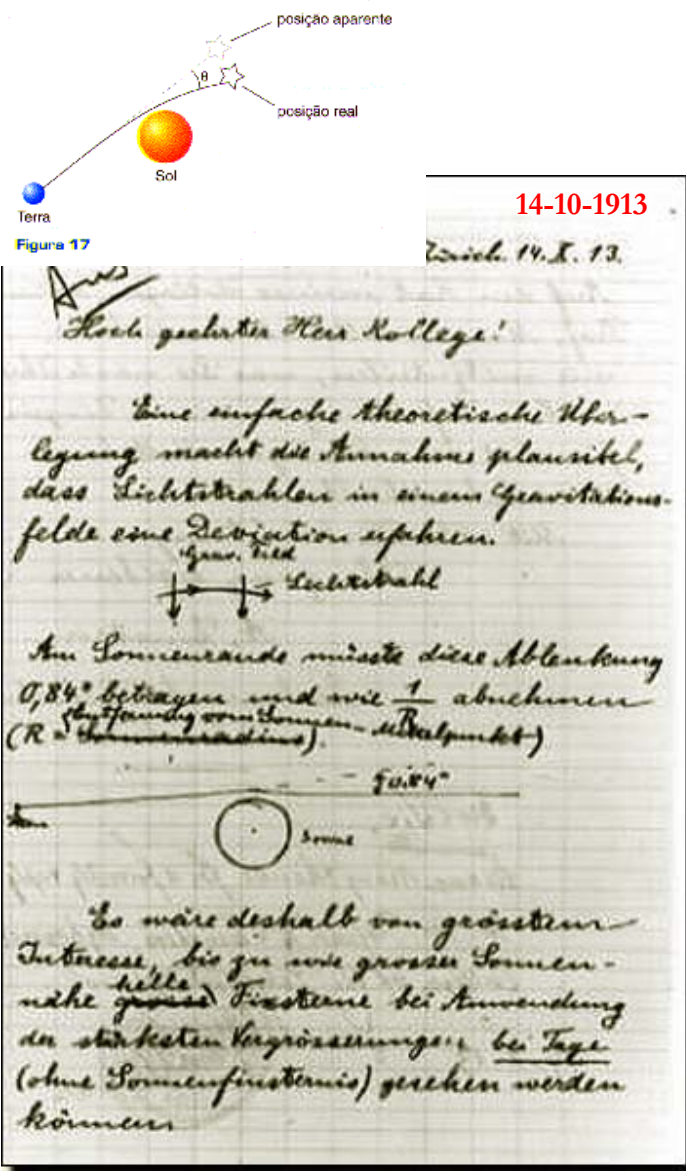 posição aparente
θ
posição real
Sol
Terra
Figura 17
14-10-1913
Zürich. 14. X. 13.
Hoch geehrter Herr Kollege!
Eine einfache theoretische Über-
legung macht die Annahme plausibel,
dass Lichtstrahlen in einem Gravitations-
felde eine Deviation erfahren.
Grav. Feld
Lichtstrahl
Am Sonnenrande müsste diese Ablenkung
0,84" betragen und wie 1/R abnehmen
(R = Sonnenradius Entfernung vom Sonnen-Mittelpunkt)
0.84"
Sonne
Es wäre deshalb von grösstem
Interesse, bis zu wie grosser Sonnen-
nähe grosse helle Fixsterne bei Anwendung
der stärksten Vergrösserungen bei Tage
(ohne Sonnenfinsternis) gesehen werden
können.